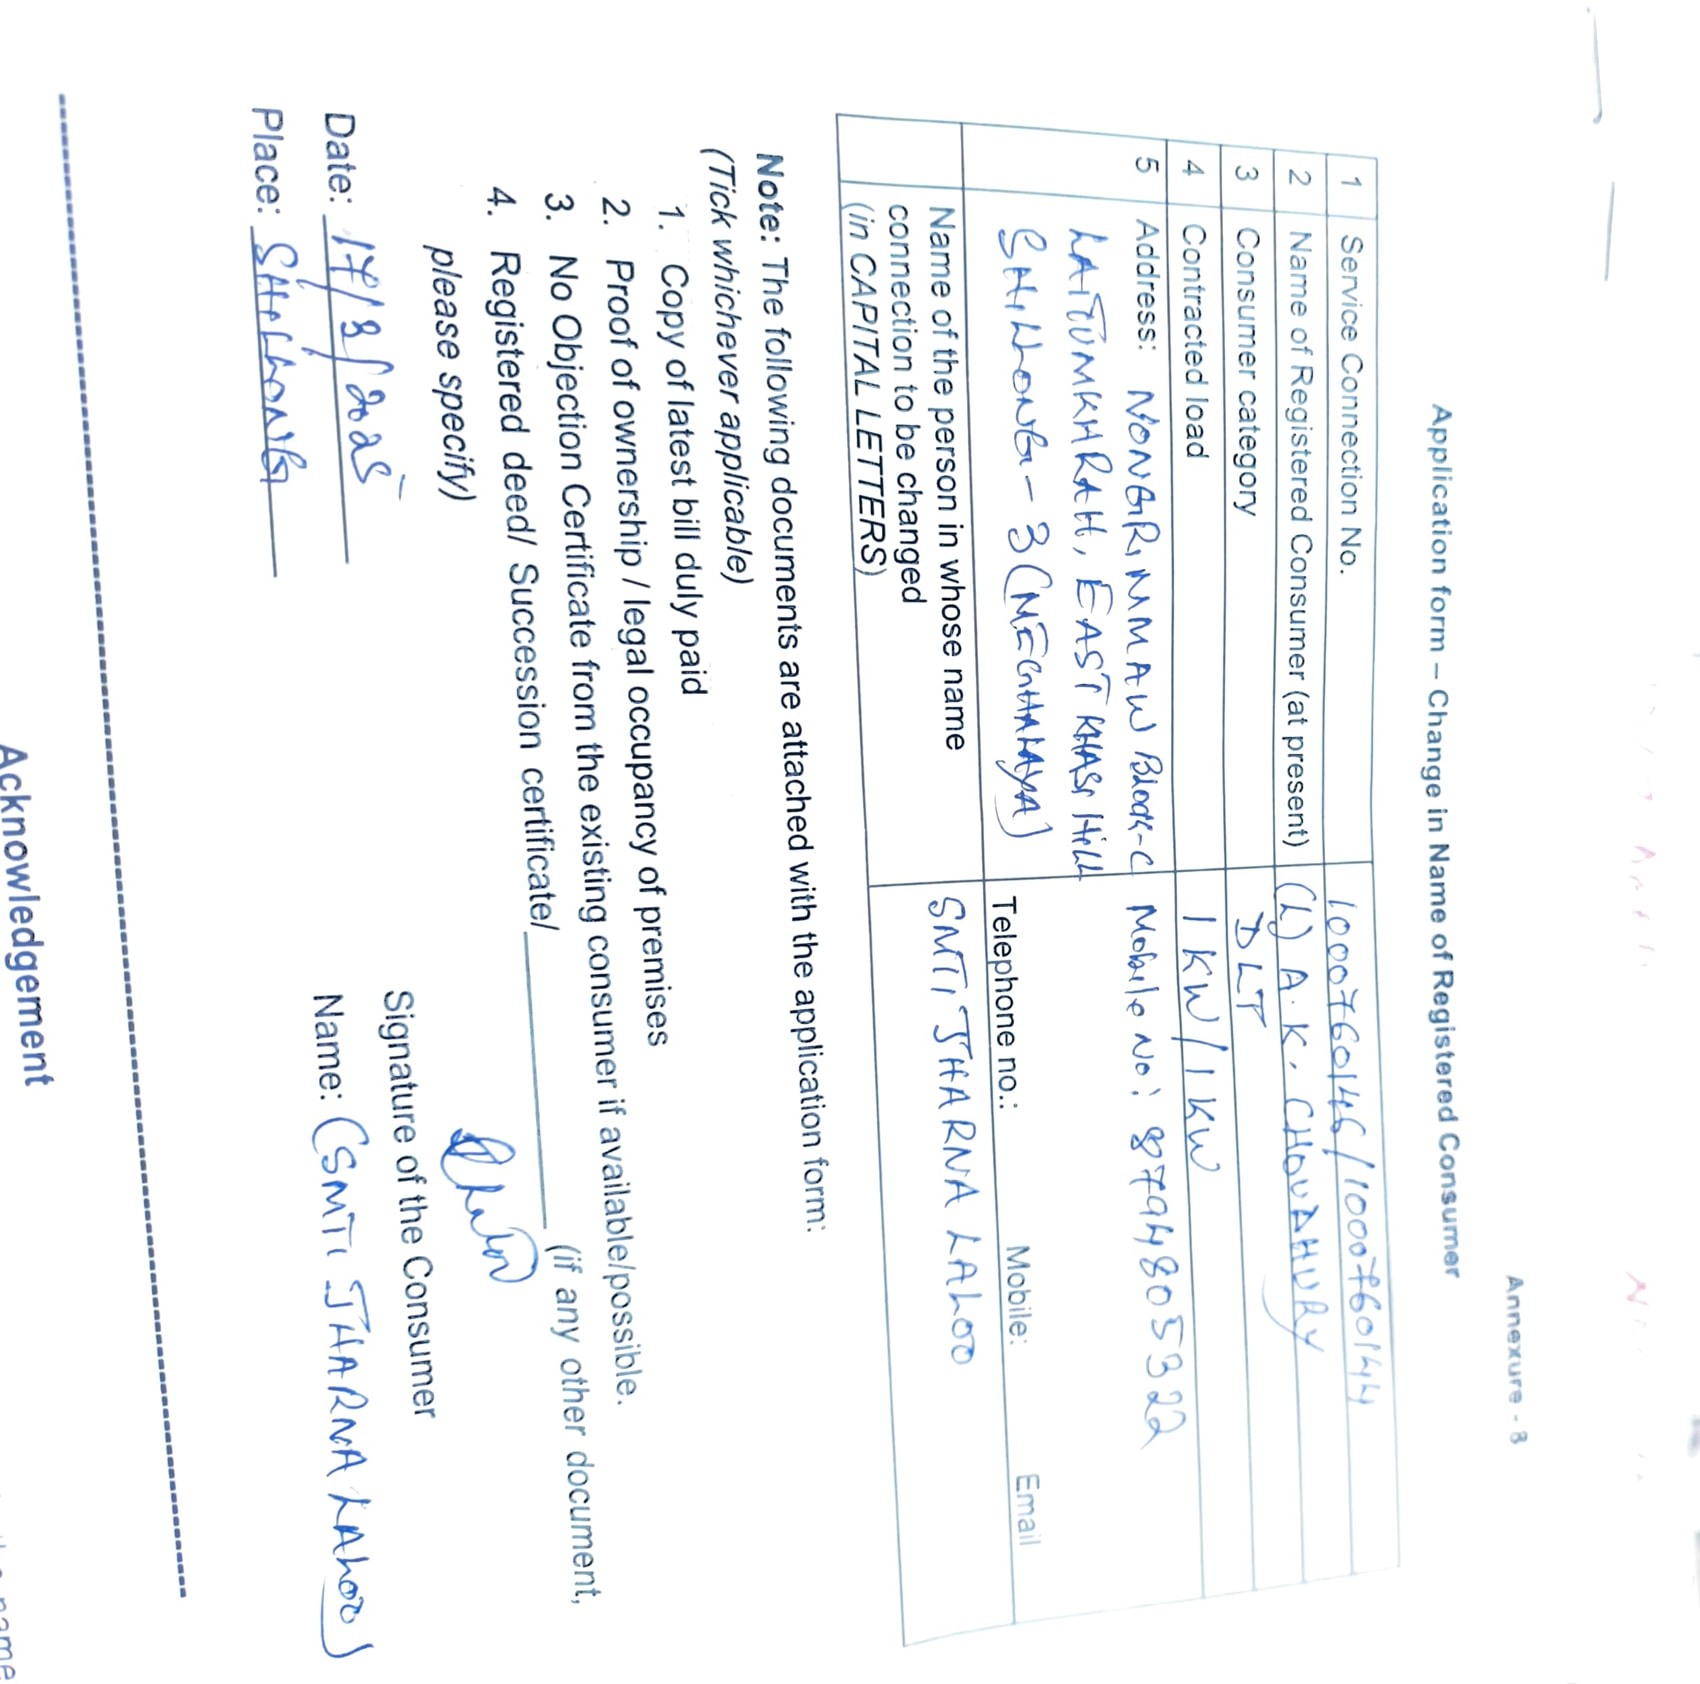 Annexure - 8
Application form – Change in Name of Registered Consumer
1 Service Connection No. 1000760146/1000760144
2 Name of Registered Consumer (at present) (L) A. K. CHOUDHURY
3 Consumer category DLT
4 Contracted load 1 KW / 1 KW
5 Address: NONGRIMMAW Block-C Mobile No: 8794805322
LAITUMKHRAH, EAST KHASI HILL
SHILLONG - 3 (MEGHALAYA) Telephone no.: Mobile: Email
Name of the person in whose name SMTI JHARNA LAHOO
connection to be changed
(in CAPITAL LETTERS)
Note: The following documents are attached with the application form:
(Tick whichever applicable)
1. Copy of latest bill duly paid
2. Proof of ownership / legal occupancy of premises
3. No Objection Certificate from the existing consumer if available/possible.
4. Registered deed/ Succession certificate/____________ (if any other document,
please specify)
Signature of the Consumer
Date: 17/3/2025
Name: (SMTI JHARNA LAHOO)
Place: SHILLONG
Acknowledgement
name